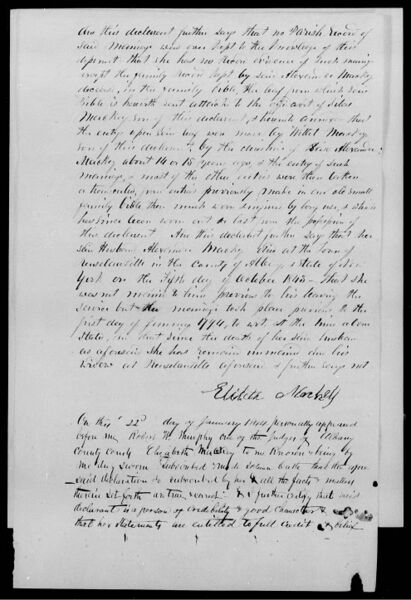 And this declarant further says that no Parish record of
said marriage was ever kept to the knowledge of this
deponent that she has no record evidence of such marriage
except the family record kept by said Alexander Mackey
deceased, in the family Bible, the leaf from which said
Bible is herewith sent attached to the affidavit of
Mackey son of this declarant, & herewith annexed that
the entry upon said leaf were made by Mackey
son of this declarant by the direction of Said Alexander
Mackey about 14 or 15 years ago, & the entry of such
marriage, & most of the other entries were then taken
from entries previously made in an old small
family bible then much worn & injured by long use, & which
has since been worn out & lost from the possession of
this declarant. And this declarant further says that her
said Husband Alexander Mackey died at the town of
Rensselaerville in the County of Albany & State of New
York on the Fifth day of October 1843 - that she
was not married to him previous to his leaving the
service but the marriage took place previous to the
first day of January 1794, to wit at the time above
Stated, and that since the death of her said husband
as aforesaid She has remained unmarried & his
widow at Rensselaerville aforesaid & further says not
Elizabeth Mackey
On this 22d day of January 1844 personally appeared
before me, Robert H. Murphy one of the Judges of Albany
County Courts Elizabeth Mackey to me known & being by
me duly sworn Subscribed & made Solemn Oath that the fore-
said declaration so subscribed by her & all the facts & matters
therein set forth are true & correct & I further certify that said
declarant is a person of credibility & good character &
that her statements are entitled to full credit & belief